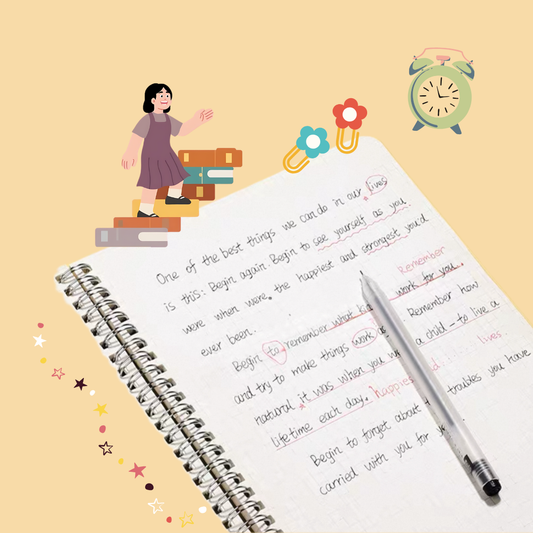 One of the best things we can do in our lives
is this: Begin again. Begin to see yourself as you
were when were the happiest and strongest you'd
ever been.
Remember
Begin to remember what work for you.
and try to make things work as Remember how
natural it was when you a child – to live a
lifetime each day. happies lives
Begin to forget about troubles you have
carried with you for